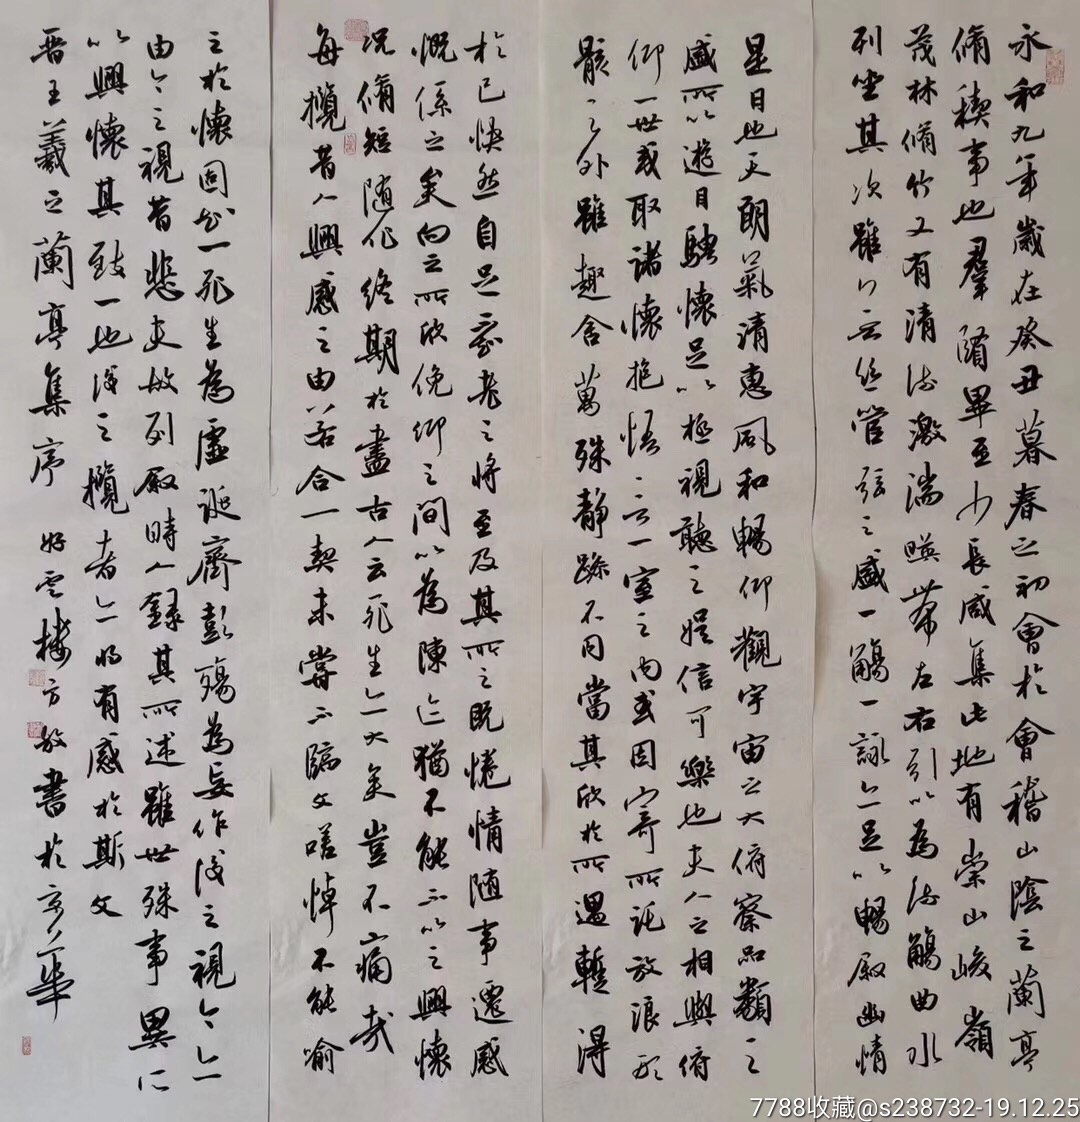 永和九年歲在癸丑暮春之初會於會稽山陰之蘭亭
脩稧事也羣賢畢至少長咸集此地有崇山峻嶺
茂林脩竹又有清流激湍暎帶左右引以為流觴曲水
列坐其次雖無絲管弦之盛一觴一詠亦足以暢敘幽情
是日也天朗氣清惠風和暢仰觀宇宙之大俯察品類之
盛所以遊目騁懷足以極視聽之娛信可樂也夫人之相與俯
仰一世或取諸懷抱悟言一室之內或因寄所託放浪形
骸之外雖趣舍萬殊靜躁不同當其欣於所遇蹔得
於己怏然自足不知老之將至及其所之既惓情隨事遷感
慨係之矣向之所欣俛仰之間以為陳迹猶不能不以之興懷
況脩短隨化終期於盡古人云死生亦大矣豈不痛哉
每攬昔人興感之由若合一契未嘗不臨文嗟悼不能喻
之於懷固知一死生為虛誕齊彭殤為妄作後之視今亦
由今之視昔悲夫故列敘時人錄其所述雖世殊事異所
以興懷其致一也後之攬者亦將有感於斯文
晉王羲之蘭亭集序 好雲樓方敬書於京華
7788收藏@s238732-19.12.25